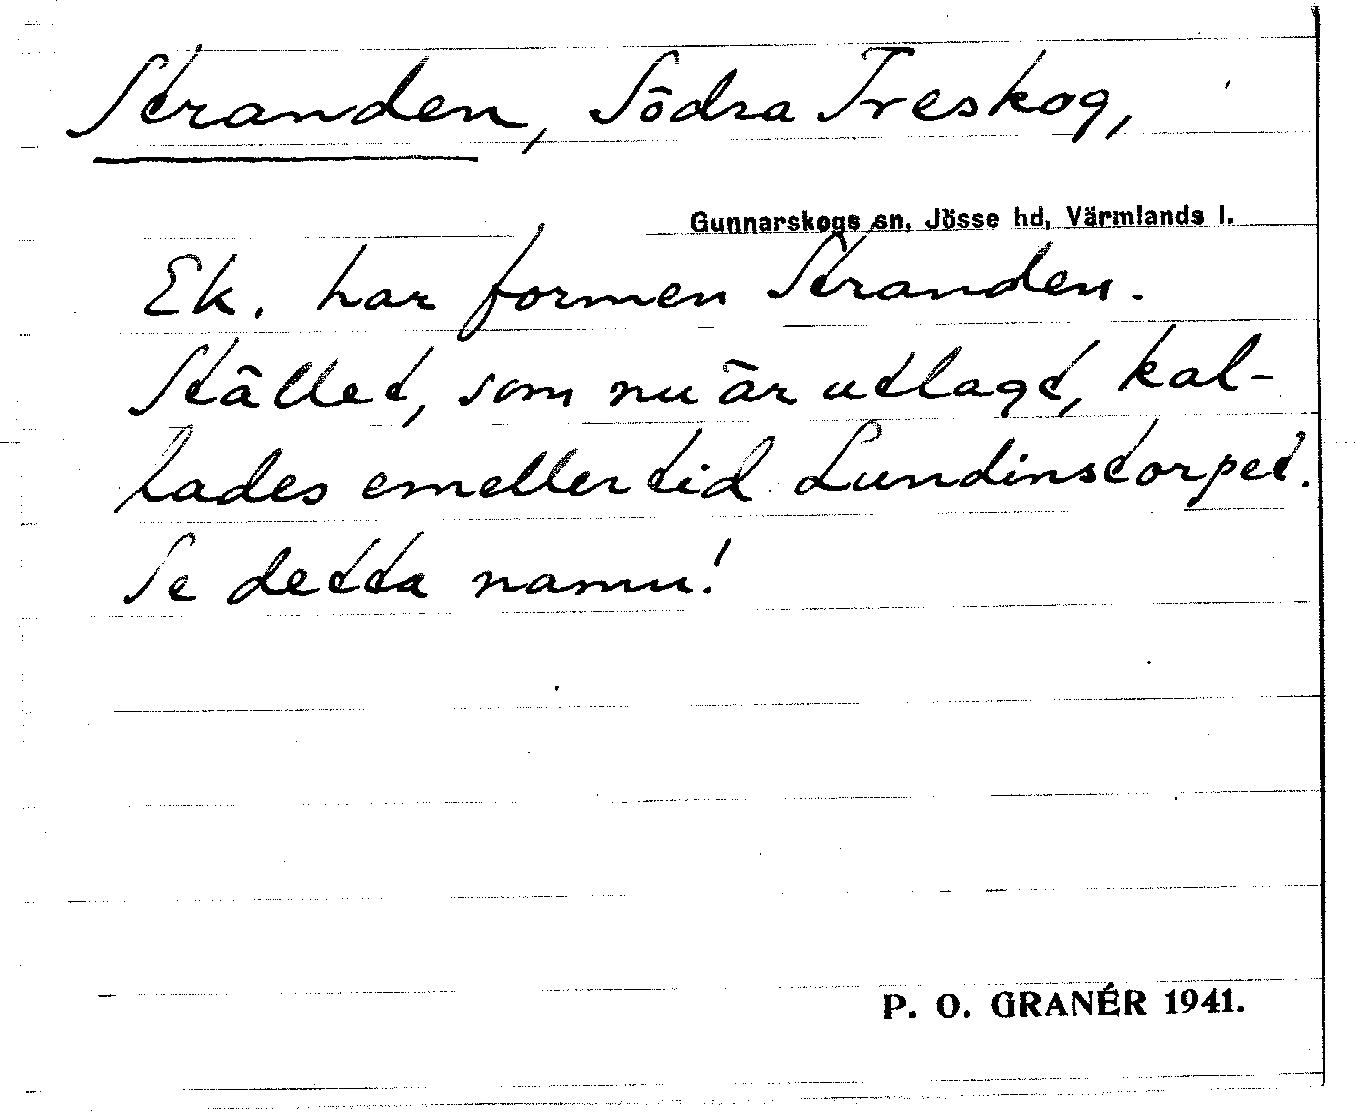 Stranden, Södra Treskog,
Gunnarskogs sn, Jösse hd, Värmlands l.
Ek. har formen Stranden.
Stället, som nu är utlagt, kal-
lades emellertid Lundinstorpet.
Se detta namn!
P. O. GRANÉR 1941.